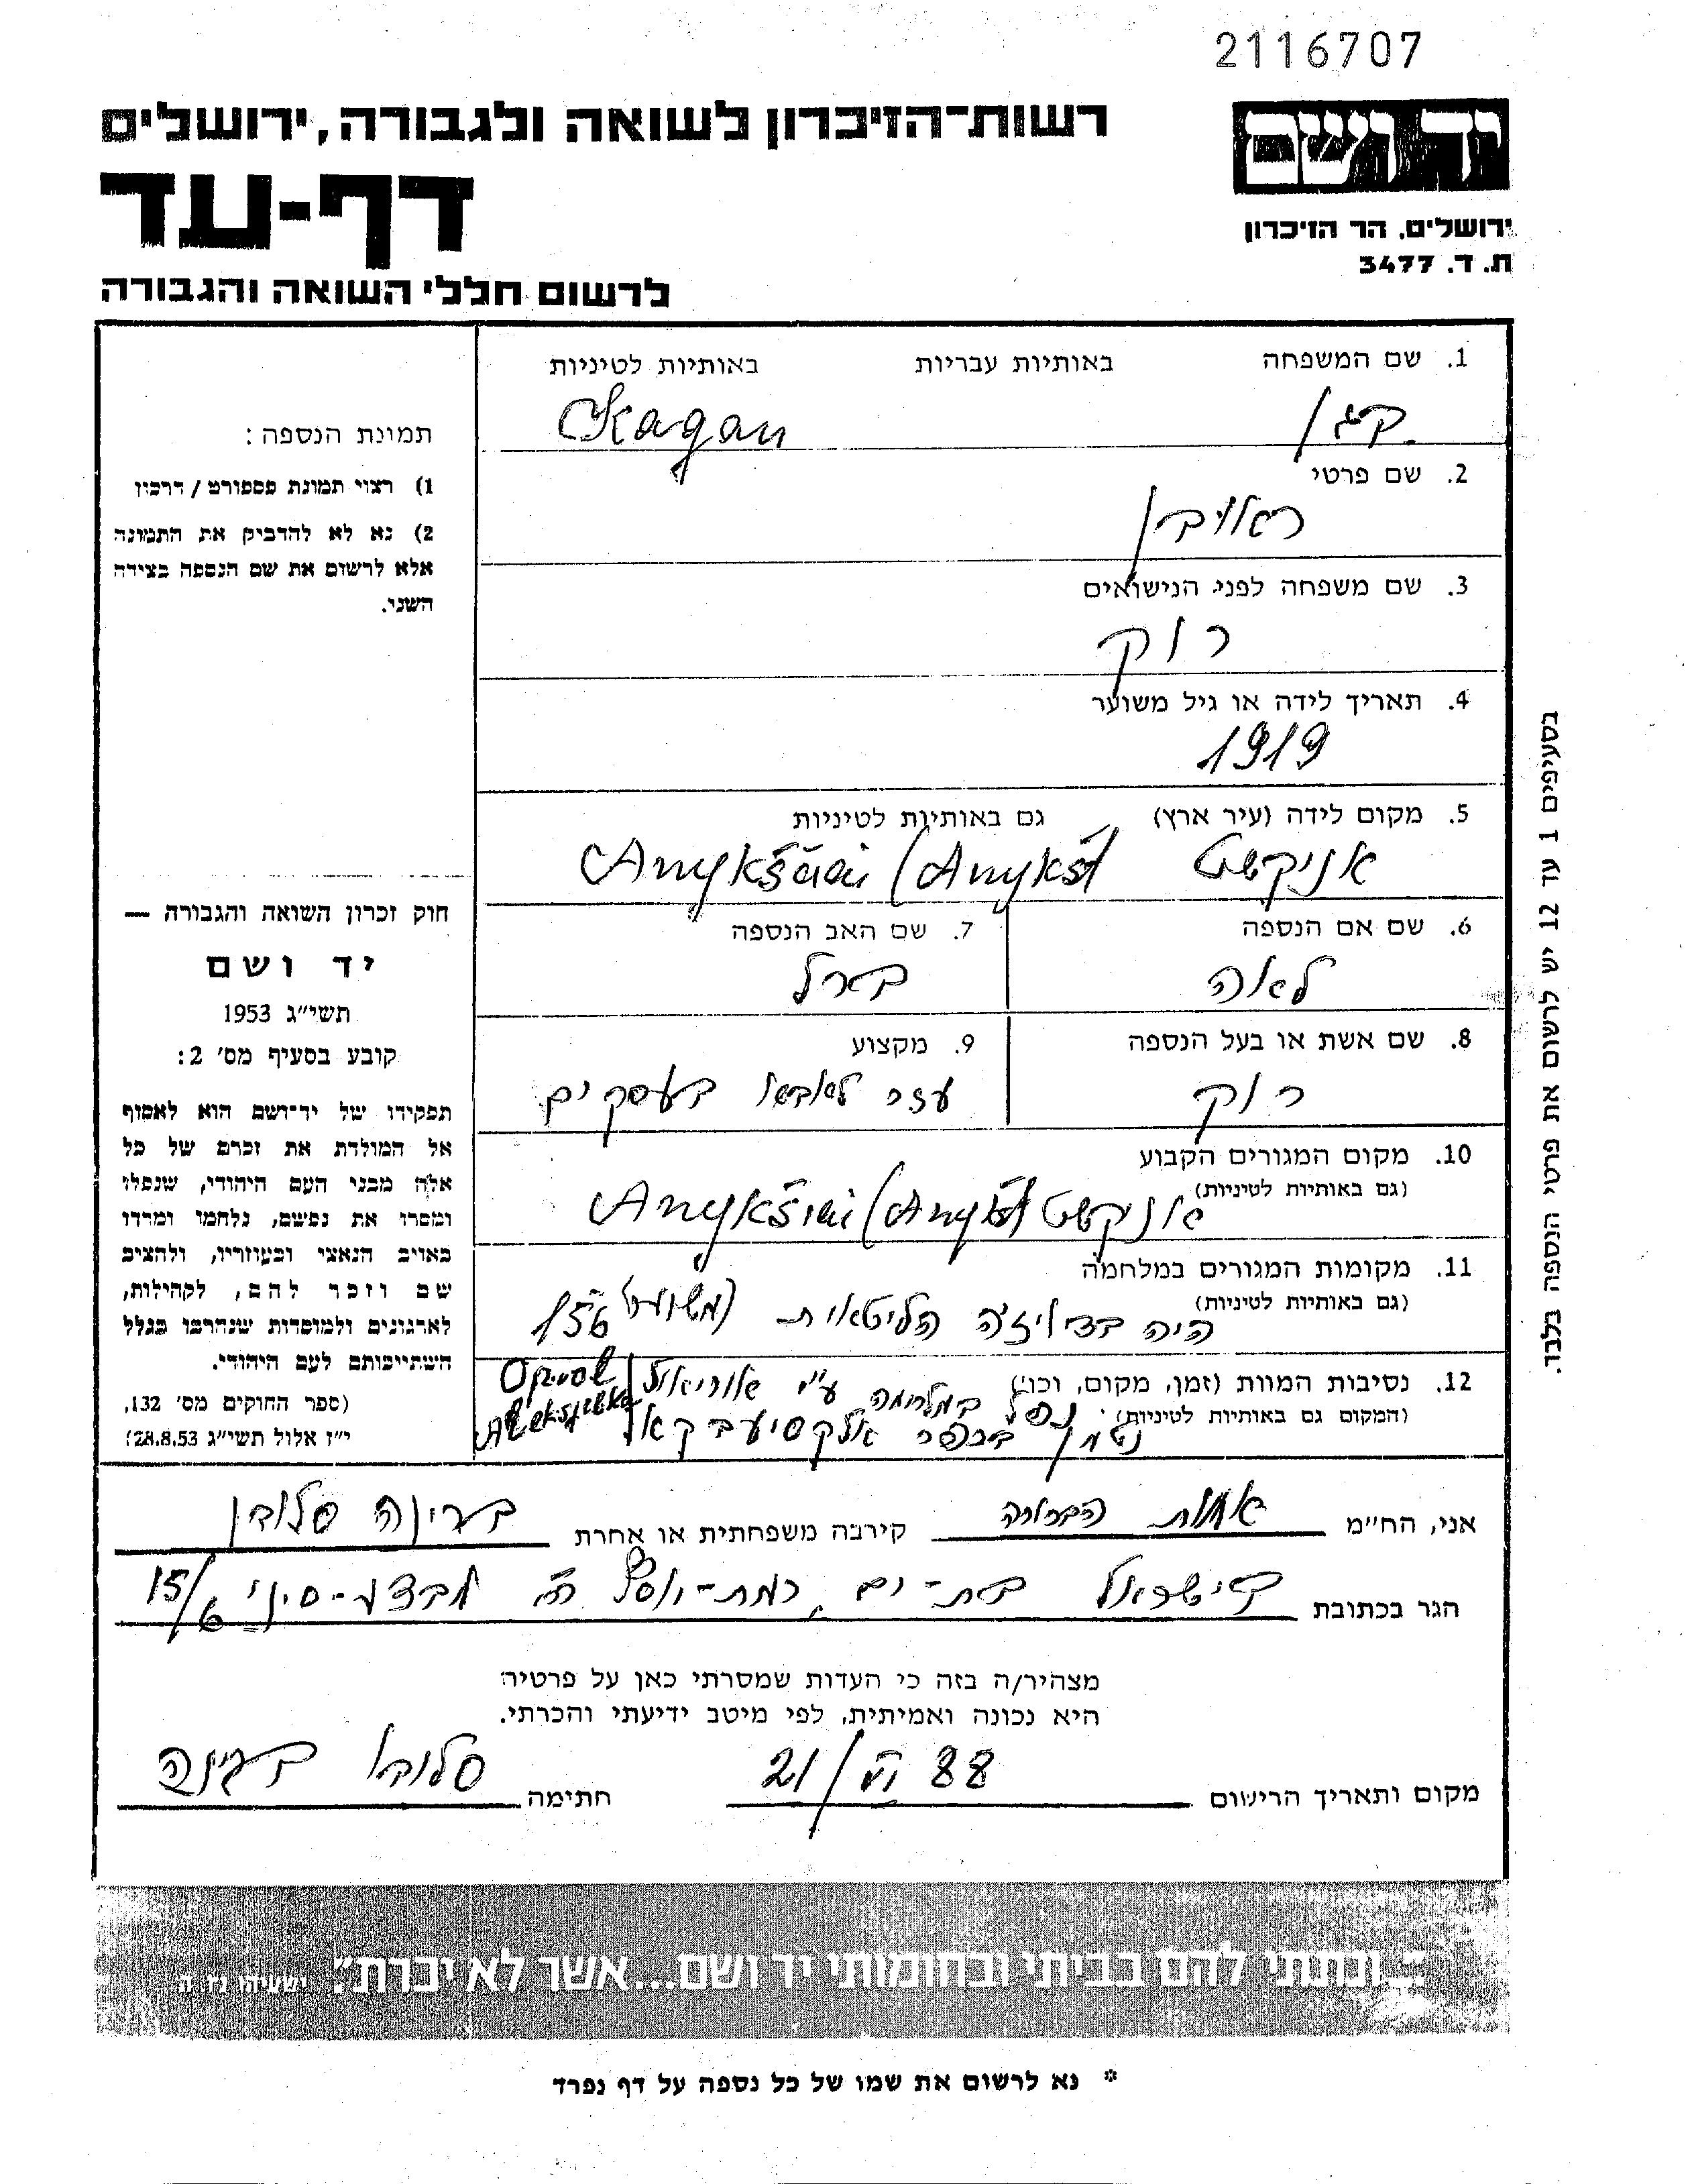 2116707
רשות-הזיכרון לשואה ולגבורה, ירושלים
יד ושם
דף-עד
ירושלים, הר הזיכרון
ת. ד. 3477
לרשום חללי השואה והגבורה
1. שם המשפחה באותיות עבריות באותיות לטיניות
קגן Kagan
2. שם פרטי
ראובן
3. שם משפחה לפני הנישואים
רווק
4. תאריך לידה או גיל משוער
1919
5. מקום לידה (עיר ארץ) גם באותיות לטיניות
אניקשט Anykščiai (Anykšt
6. שם אם הנספה 7. שם האב הנספה
לאה בארל
8. שם אשת או בעל הנספה 9. מקצוע
רווק עזר לאביו בעסקים
10. מקום המגורים הקבוע
(גם באותיות לטיניות)
אניקשט Anykščiai (Anykšt
11. מקומות המגורים במלחמה
(גם באותיות לטיניות)
היה בדיויזיה הליטאית
12. נסיבות המוות (זמן, מקום, וכו')
(המקום גם באותיות לטיניות)
נפל במלחמה ע"י
נטמן בכפר אלקסייבקא
תמונת הנספה:
1) רצוי תמונת פספורט / דרכון
2) נא לא להדביק את התמונה
אלא לרשום את שם הנספה בצידה
השני.
חוק זכרון השואה והגבורה —
יד ושם
תשי״ג 1953
קובע בסעיף מס׳ 2:
תפקידו של יד־ושם הוא לאסוף
אל המולדת את זכרם של כל
אלה מבני העם היהודי, שנפלו
ומסרו את נפשם, נלחמו ומרדו
באויב הנאצי ובעוזריו, ולהציב
שם וזכר להם, לקהילות,
לארגונים ולמוסדות שנחרבו בגלל
השתייכותם לעם היהודי.
(ספר החוקים מס׳ 132,
י״ז אלול תשי״ג 28.8.53)
בסעיפים 1 עד 12 יש לרשום את פרטי הנספה בלבד.
אני, הח״מ אחות קירבה משפחתית או אחרת
הגר בכתובת בישראל בת-ים, רמת-יוסף מבצע-סיני 15/6
מצהיר/ה בזה כי העדות שמסרתי כאן על פרטיה
היא נכונה ואמיתית, לפי מיטב ידיעתי והכרתי.
מקום ותאריך הרישום 21/VI 88 חתימה
"...ונתתי להם בביתי ובחומותי יד ושם...אשר לא יכרת". ישעיהו נו, ה
* נא לרשום את שמו של כל נספה על דף נפרד